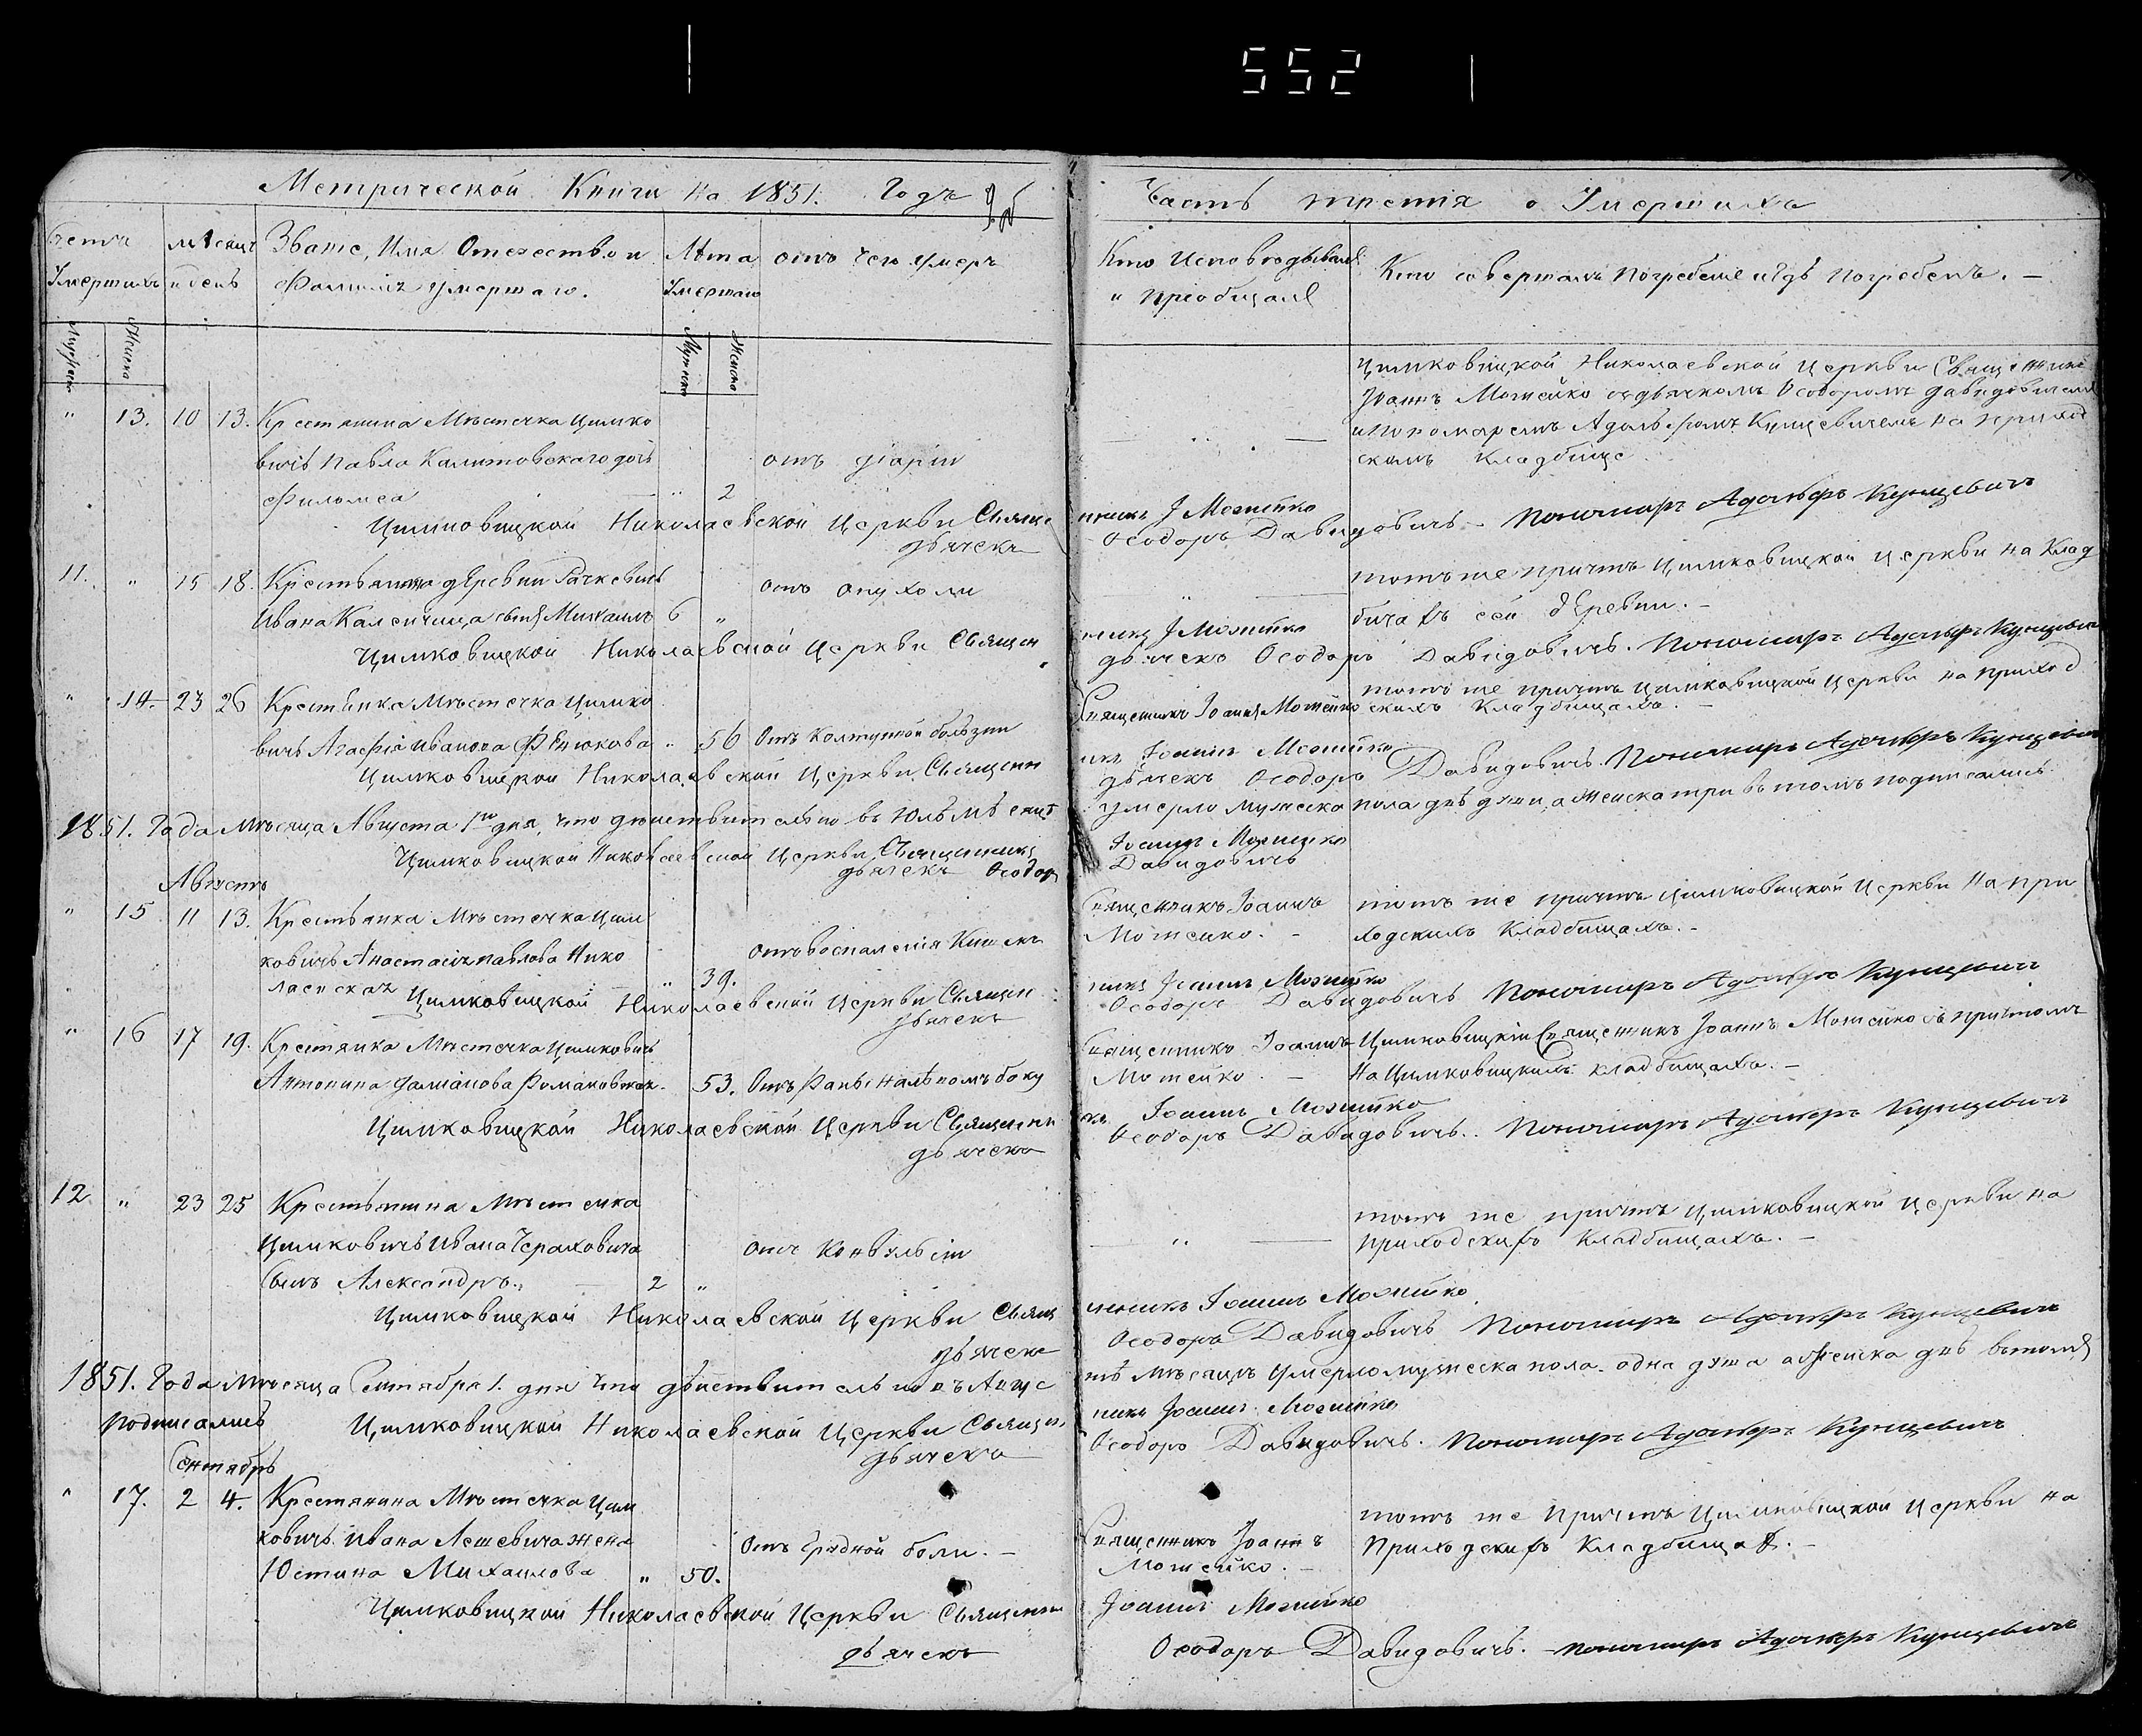 552
Метрической Книги на 1851. Годъ
Часть третія о Умершихъ
Счетъ Умершихъ
Мѣсяцъ и день
Званіе, Имя Отечество и Фамилія умершаго.
Лѣта Умершаго
отъ чего умеръ
Кто Исповѣдывалъ и пріобщалъ
Кто совершалъ Погребеніе и гдѣ погребенъ. —
Мужеска
Женска
Мужеска
Женска
" 13. 10 13. Крестянина Мѣстечка Цимко
вичъ Павла Калитовскаго дочь
" 2 отъ діаріи
Цимковицкой Николаевской Церкви Священникъ
Іоаннъ Мотейко съ дьячкомъ Ѳеодоромъ Давидовичемъ
и Пономаремъ Адольфомъ Кунцевичемъ на приход
скомъ Кладбище
Цимковицкой Николаевской Церкви Священникъ І Мотейко
дьячекъ Ѳеодоръ Давидовичъ — Пономаръ Адольфъ Кунцевичъ
11. " 15 18. Крестьянина деревни Рачковичъ
Ивана Калечица сынъ Михаилъ 6 "
отъ опухоли
тотъ же причтъ Цимковицкой Церкви на Клад
бищахъ сей деревни. —
Цимковицкой Николаевской Церкви Священникъ І Мотейко
дьячекъ Ѳеодоръ Давидовичъ. Пономаръ Адольфъ Кунцевичъ
" 14. 23 26 Крестьянка Мѣстечка Цимко
вичъ Агафія Иванова " 56 отъ Колтунной болѣзни
Священникъ Іоаннъ Мотейко
тотъ же причтъ Цимковицкой Церкви на приход
скихъ Кладбищахъ. —
Цимковицкой Николаевской Церкви Священникъ Іоаннъ Мотейко
дьячекъ Ѳеодоръ Давидовичъ. Пономаръ Адольфъ Кунцевичъ
1851. Года Мѣсяца Августа 1го дня, что дѣйствительно въ Юлѣ Мѣсяцѣ умерло мужеска пола двѣ души, а женска три въ томъ подписались.
Цимковицкой Николаевской Церкви Священникъ Іоаннъ Мотейко
дьячекъ Ѳеодоръ Давидовичъ
Августъ
" 15 11 13. Крестьянка Мѣстечка Цим
ковичъ Анастасія Павлова Нико
лаевская " 39.
отъ воспаленія Кишекъ
Священникъ Іоаннъ
Мотейко. —
тотъ же причтъ Цимковицкой Церкви на при
ходскихъ Кладбищахъ. —
Цимковицкой Николаевской Церкви Священникъ Іоаннъ Мотейко
дьячекъ Ѳеодоръ Давидовичъ Пономаръ Адольфъ Кунцевичъ
" 16 17 19. Крестянка Мѣстечка Цимковичъ
Антонина Даміанова Романовская. 53. Отъ раны на лѣвомъ боку
Священникъ Іоаннъ
Мотейко. —
Цимковицкій Священникъ Іоаннъ Мотейко съ причтомъ
на Цимковицкихъ кладбищахъ. —
Цимковицкой Николаевской Церкви Священникъ Іоаннъ Мотейко
дьячекъ Ѳеодоръ Давидовичъ. Пономаръ Адольфъ Кунцевичъ
12 " 23 25 Крестьянина Мѣстечка
Цимковичъ Ивана Чераховича
Сынъ Александръ. 2 "
отъ Конвульсіи
тотъ же причтъ Цимковицкой Церкви на
приходскихъ Кладбищахъ. —
Цимковицкой Николаевской Церкви Священникъ Іоаннъ Мотейко
дьячекъ Ѳеодоръ Давидовичъ Пономаръ Адольфъ Кунцевичъ
1851. Года Мѣсяца Сентября 1. дня что дѣйствительно въ Августѣ Мѣсяцѣ умерло мужеска пола одна душа а женска двѣ въ томъ
подписались
Цимковицкой Николаевской Церкви Священникъ Іоаннъ Мотейко
дьячекъ Ѳеодоръ Давидовичъ. Пономаръ Адольфъ Кунцевичъ
Сентябрь
" 17. 2 4. Крестянина Мѣстечка Цим
ковичъ Ивана Лешевича жена
Юстина Михаилова " 50.
Отъ Грудной боли. —
Священникъ Іоаннъ
Мотейко. —
тотъ же Причтъ Цимковицкой Церкви на
Приходскихъ Кладбищахъ. —
Цимковицкой Николаевской Церкви Священникъ Іоаннъ Мотейко
дьячекъ Ѳеодоръ Давидовичъ. — Пономаръ Адольфъ Кунцевичъ